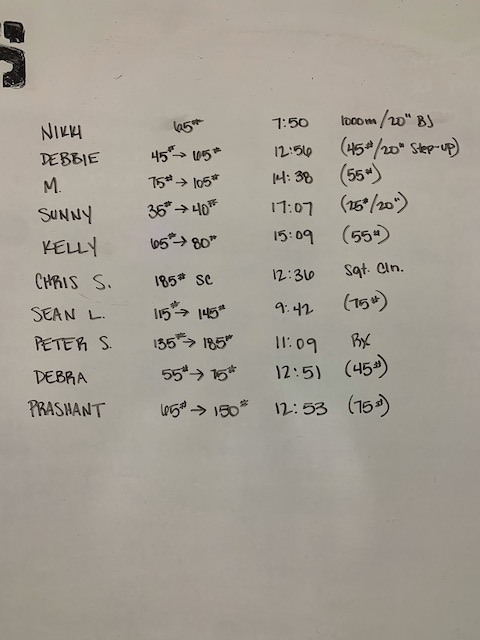 NIKKI 65# 7:50 1000m/20" BJ
DEBBIE 45# → 65# 12:56 (45#/20" Step-up)
M. 75# → 105# 14:38 (55#)
SUNNY 35# → 40# 17:07 (25#/20")
KELLY 65# → 80# 15:09 (55#)
CHRIS S. 185# SC 12:36 Sqt. Cln.
SEAN L. 115# → 145# 9:42 (75#)
PETER S. 135# → 185# 11:09 RX
DEBRA 55# → 75# 12:51 (45#)
PRASHANT 65# → 150# 12:53 (75#)